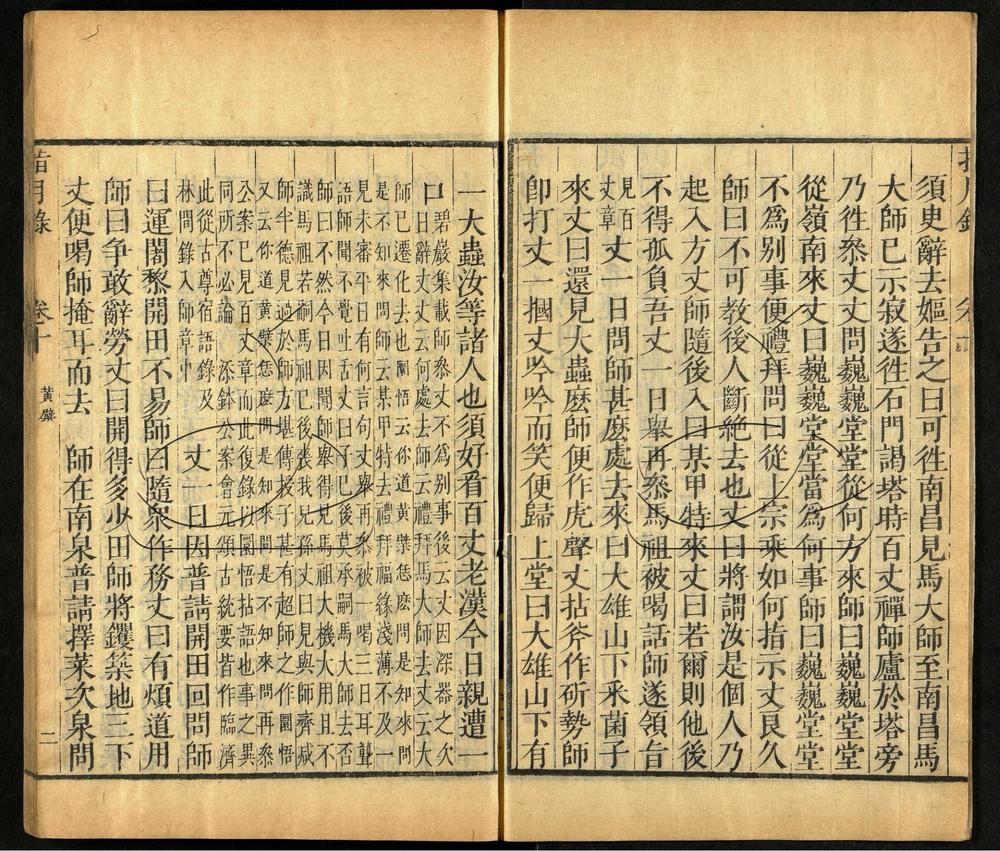 須史辭去嫗告之曰可徃南昌見馬大師至南昌馬
大師已示寂遂徃石門謁塔時百丈禪師廬於塔旁
乃徃叅丈丈問巍巍堂堂從何方來師曰巍巍堂堂
從嶺南來丈曰巍巍堂堂當爲何事師曰巍巍堂堂
不爲别事便禮拜問曰從上宗乘如何指示丈良久
師曰不可教後人斷絕去也丈曰將謂汝是個人乃
起入方丈師隨後入曰某甲特來丈曰若爾則他後
不得孤負吾丈一日舉再叅馬祖被喝話師遂領旨
見百丈章 丈一日問師甚麽處去來曰大雄山下采菌子
來丈曰還見大蟲麽師便作虎聲丈拈斧作斫勢師
卽打丈一摑丈吟吟而笑便歸 上堂曰大雄山下有
一大蟲汝等諸人也須好看百丈老漢今日親遭一
口
碧巖集載師叅丈不爲别事後云丈因深器之次
日辭丈丈云何處去師云禮拜馬大師去丈云大
師已遷化去也圜悟云你道黄檗恁麽問是知來問
是不知來問師云某甲特去禮拜福緣淺薄不及一
見未審平日有何言句丈舉再叅被一喝三日耳聾
語師聞不覺吐舌丈曰子已後莫承嗣馬大師去否
師曰不然今日因聞師舉得見馬祖大機大用且不
識馬祖若嗣馬祖已後喪我兒孫丈曰見與師齊减
師半德見過於師方堪傳授子甚有超師之作圜悟
又云你道黄檗恁麽問是知來問是不知來問再叅
公案已見百丈章而此復錄以圜悟拈語也事之異
同所不必論 添鉢公案會元頌古統要皆作臨濟
此從古尊宿語錄及
林間錄入師章中
丈一日因普請開田回問師
曰運闍黎開田不易師曰隨衆作務丈曰有煩道用
師曰争敢辭勞丈曰開得多少田師將钁築地三下
丈便喝師掩耳而去 師在南泉普請擇菜次泉問
指月錄 卷十 黄檗 二